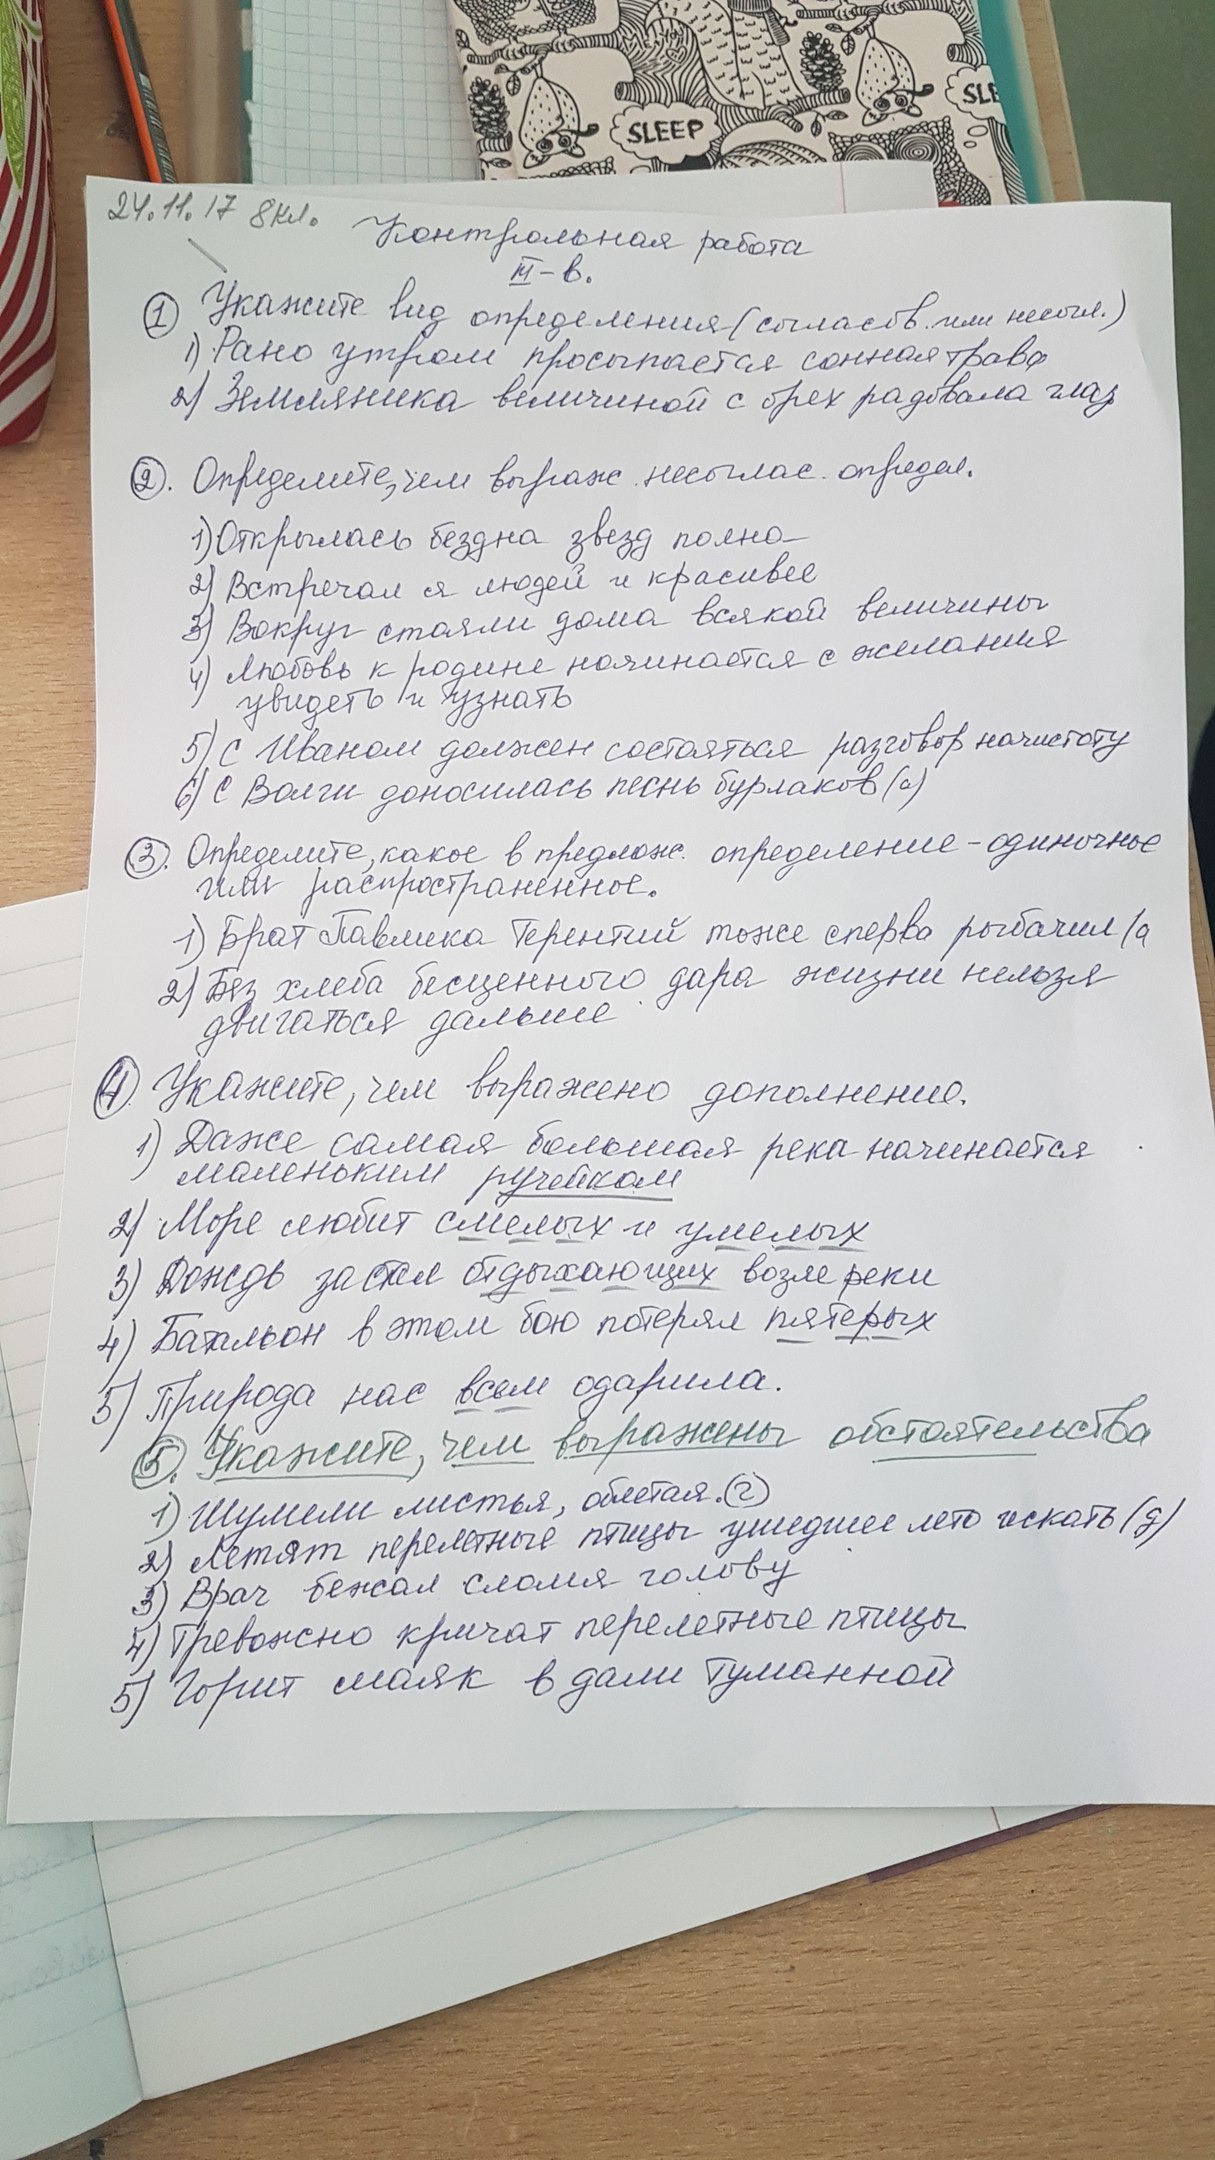 SLEEP
SLE
24.11.17 8кл.
Контрольная работа
III-в.
1 Укажите вид определения (согласов. или несогл.)
1) Рано утром просыпается сонная трава
2) Земляника величиной с орех радовала глаз
2. Определите, чем выраж. несоглас. определ.
1) Открылась бездна звезд полна
2) Встречал я людей и красивее
3) Вокруг стояли дома всякой величины
4) Любовь к родине начинается с желания
увидеть и узнать
5) С Иваном должен состояться разговор начистоту
6) С Волги доносилась песнь бурлаков (а)
3. Определите, какое в предлож. определение - одиночное
или распространенное.
1) Брат Павлика Терентий тоже сперва рыбачил (а
2) Без хлеба бесценного дара жизни нельзя
двигаться дальше
4. Укажите, чем выражено дополнение.
1) Даже самая большая река начинается
маленьким ручейком
2) Море любит смелых и умелых
3) Дождь застал отдыхающих возле реки
4) Батальон в этом бою потерял пятерых
5) Природа нас всем одарила.
5. Укажите, чем выражены обстоятельства
1) Шумели листья, облетая. (г)
2) Летят перелетные птицы ушедшее лето искать (д)
3) Врач бежал сломя голову
4) Тревожно кричат перелетные птицы
5) Горит маяк в дали туманной